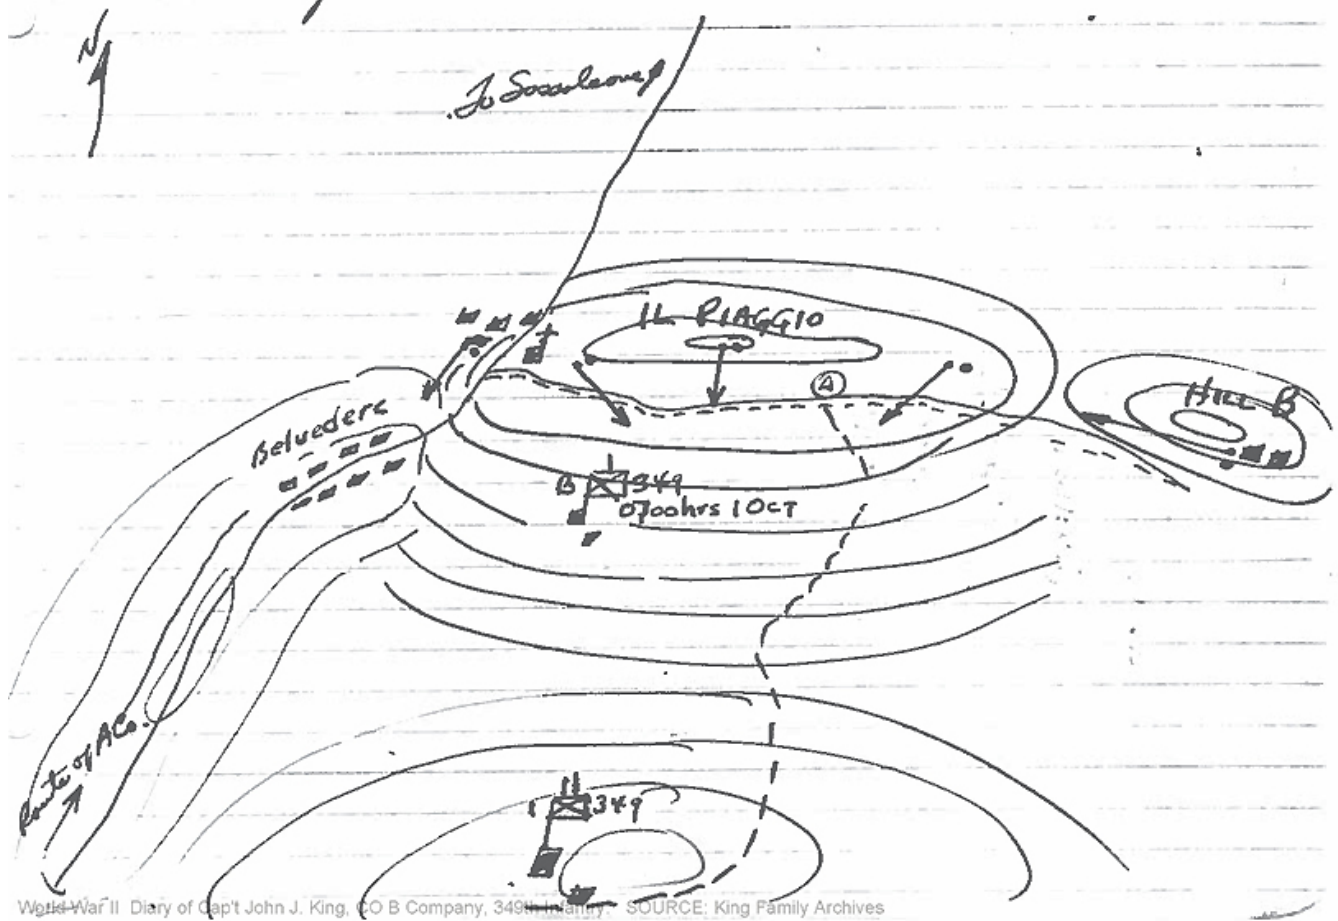 N
To Sassaleone
IL PIAGGIO
A
HILL B
Belvedere
B 349
0700hrs 1 OCT
Route of A Co.
1 349
World War II Diary of Cap't John J. King, CO B Company, 349th Infantry. SOURCE: King Family Archives